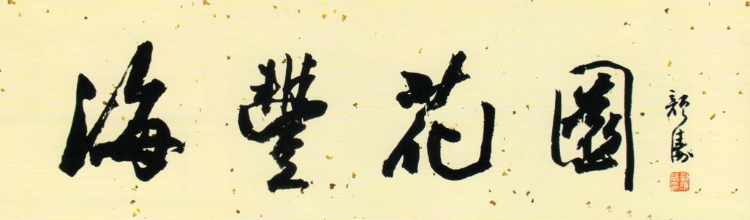 海豐花園